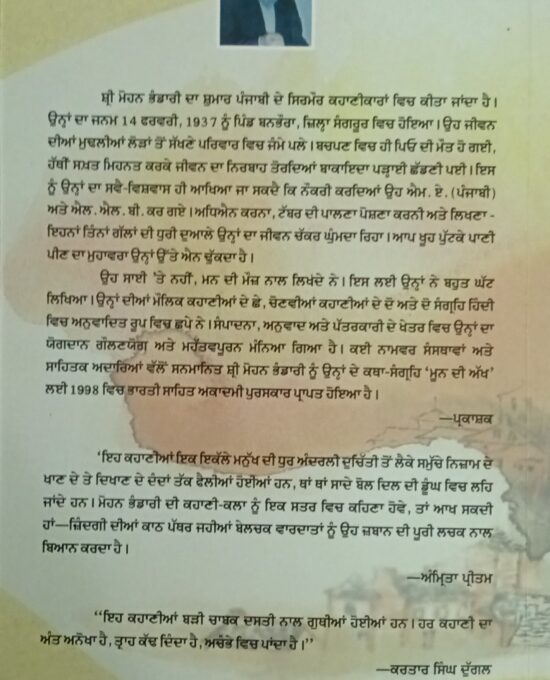 ਸ਼੍ਰੀ ਮੋਹਨ ਭੰਡਾਰੀ ਦਾ ਸ਼ੁਮਾਰ ਪੰਜਾਬੀ ਦੇ ਸਿਰਮੌਰ ਕਹਾਣੀਕਾਰਾਂ ਵਿਚ ਕੀਤਾ ਜਾਂਦਾ ਹੈ।
ਉਨ੍ਹਾਂ ਦਾ ਜਨਮ 14 ਫਰਵਰੀ, 1937 ਨੂੰ ਪਿੰਡ ਬਨਭੌਰਾ, ਜ਼ਿਲ੍ਹਾ ਸੰਗਰੂਰ ਵਿਚ ਹੋਇਆ। ਉਹ ਜੀਵਨ
ਦੀਆਂ ਮੁਢਲੀਆਂ ਲੋੜਾਂ ਤੋਂ ਸੱਖਣੇ ਪਰਿਵਾਰ ਵਿਚ ਜੰਮੇ ਪਲੇ। ਬਚਪਣ ਵਿਚ ਹੀ ਪਿਓ ਦੀ ਮੌਤ ਹੋ ਗਈ,
ਹੱਥੀਂ ਸਖ਼ਤ ਮਿਹਨਤ ਕਰਕੇ ਜੀਵਨ ਦਾ ਨਿਰਬਾਹ ਤੋਰਦਿਆਂ ਬਾਕਾਇਦਾ ਪੜ੍ਹਾਈ ਛੱਡਣੀ ਪਈ। ਇਸ
ਨੂੰ ਉਨ੍ਹਾਂ ਦਾ ਸਵੈ-ਵਿਸ਼ਵਾਸ ਹੀ ਆਖਿਆ ਜਾ ਸਕਦੈ ਕਿ ਨੌਕਰੀ ਕਰਦਿਆਂ ਉਹ ਐਮ. ਏ. (ਪੰਜਾਬੀ)
ਅਤੇ ਐਲ. ਐਲ. ਬੀ. ਕਰ ਗਏ। ਅਧਿਐਨ ਕਰਨਾ, ਟੱਬਰ ਦੀ ਪਾਲਣਾ ਪੋਸ਼ਣਾ ਕਰਨੀ ਅਤੇ ਲਿਖਣਾ -
ਇਹਨਾਂ ਤਿੰਨਾਂ ਗੱਲਾਂ ਦੀ ਧੁਰੀ ਦੁਆਲੇ ਉਨ੍ਹਾਂ ਦਾ ਜੀਵਨ ਚੱਕਰ ਘੁੰਮਦਾ ਰਿਹਾ। ਆਪ ਖੂਹ ਪੁੱਟਕੇ ਪਾਣੀ
ਪੀਣ ਦਾ ਮੁਹਾਵਰਾ ਉਨ੍ਹਾਂ ਉੱਤੇ ਐਨ ਢੁੱਕਦਾ ਹੈ।
ਉਹ ਸਾਈ 'ਤੇ ਨਹੀਂ, ਮਨ ਦੀ ਮੌਜ਼ ਨਾਲ ਲਿਖਦੇ ਨੇ। ਇਸ ਲਈ ਉਨ੍ਹਾਂ ਨੇ ਬਹੁਤ ਘੱਟ
ਲਿਖਿਆ। ਉਨ੍ਹਾਂ ਦੀਆਂ ਮੌਲਿਕ ਕਹਾਣੀਆਂ ਦੇ ਛੇ, ਚੋਣਵੀਂ ਕਹਾਣੀਆਂ ਦੇ ਦੋ ਅਤੇ ਦੋ ਸੰਗ੍ਰਹਿ ਹਿੰਦੀ
ਵਿਚ ਅਨੁਵਾਦਿਤ ਰੂਪ ਵਿਚ ਛਪੇ ਨੇ। ਸੰਪਾਦਨਾ, ਅਨੁਵਾਦ ਅਤੇ ਪੱਤਰਕਾਰੀ ਦੇ ਖੇਤਰ ਵਿਚ ਉਨ੍ਹਾਂ ਦਾ
ਯੋਗਦਾਨ ਗੌਲਣਯੋਗ ਅਤੇ ਮਹੱਤਵਪੂਰਨ ਮੰਨਿਆ ਗਿਆ ਹੈ। ਕਈ ਨਾਮਵਰ ਸੰਸਥਾਵਾਂ ਅਤੇ
ਸਾਹਿਤਕ ਅਦਾਰਿਆਂ ਵੱਲੋਂ ਸਨਮਾਨਿਤ ਸ਼੍ਰੀ ਮੋਹਨ ਭੰਡਾਰੀ ਨੂੰ ਉਨ੍ਹਾਂ ਦੇ ਕਥਾ-ਸੰਗ੍ਰਹਿ 'ਮੂਨ ਦੀ ਅੱਖ'
ਲਈ 1998 ਵਿਚ ਭਾਰਤੀ ਸਾਹਿਤ ਅਕਾਦਮੀ ਪੁਰਸਕਾਰ ਪ੍ਰਾਪਤ ਹੋਇਆ ਹੈ।
—ਪ੍ਰਕਾਸ਼ਕ
'ਇਹ ਕਹਾਣੀਆਂ ਇਕ ਇਕੱਲੇ ਮਨੁੱਖ ਦੀ ਧੁਰ ਅੰਦਰਲੀ ਦੁਚਿੱਤੀ ਤੋਂ ਲੈਕੇ ਸਮੁੱਚੇ ਨਿਜ਼ਾਮ ਦੇ
ਖਾਣ ਦੇ ਤੇ ਦਿਖਾਣ ਦੇ ਦੰਦਾਂ ਤੱਕ ਫੈਲੀਆਂ ਹੋਈਆਂ ਹਨ, ਥਾਂ ਥਾਂ ਸਾਦੇ ਬੋਲ ਦਿਲ ਦੀ ਡੂੰਘ ਵਿਚ ਲਹਿ
ਜਾਂਦੇ ਹਨ। ਮੋਹਨ ਭੰਡਾਰੀ ਦੀ ਕਹਾਣੀ-ਕਲਾ ਨੂੰ ਇਕ ਸਤਰ ਵਿਚ ਕਹਿਣਾ ਹੋਵੇ, ਤਾਂ ਆਖ ਸਕਦੀ
ਹਾਂ—ਜ਼ਿੰਦਗੀ ਦੀਆਂ ਕਾਠ ਪੱਥਰ ਜਹੀਆਂ ਬੇਲਚਕ ਵਾਰਦਾਤਾਂ ਨੂੰ ਉਹ ਜ਼ਬਾਨ ਦੀ ਪੂਰੀ ਲਚਕ ਨਾਲ
ਬਿਆਨ ਕਰਦਾ ਹੈ।
—ਅੰਮ੍ਰਿਤਾ ਪ੍ਰੀਤਮ
"ਇਹ ਕਹਾਣੀਆਂ ਬੜੀ ਚਾਬਕ ਦਸਤੀ ਨਾਲ ਗੁਥੀਆਂ ਹੋਈਆਂ ਹਨ। ਹਰ ਕਹਾਣੀ ਦਾ
ਅੰਤ ਅਨੋਖਾ ਹੈ, ਤ੍ਰਾਹ ਕੱਢ ਦਿੰਦਾ ਹੈ, ਅਚੰਭੇ ਵਿਚ ਪਾਂਦਾ ਹੈ।"
—ਕਰਤਾਰ ਸਿੰਘ ਦੁੱਗਲ